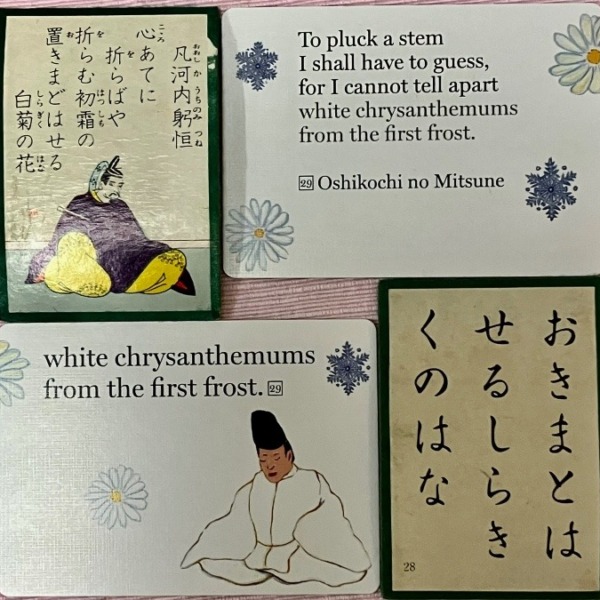 凡河内躬恒
心あてに
折らばや
折らむ初霜の
置きまどはせる
白菊の花
To pluck a stem
I shall have to guess,
for I cannot tell apart
white chrysanthemums
from the first frost.
29 Oshikochi no Mitsune
white chrysanthemums
from the first frost. 29
おきまとは
せるしらき
くのはな
28